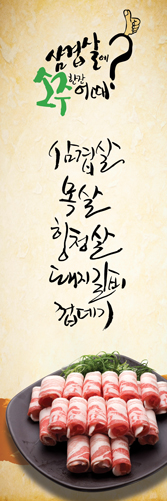 삼겹살에
소주한잔
어때?
삼겹살
목살
항정살
돼지갈비
껍데기